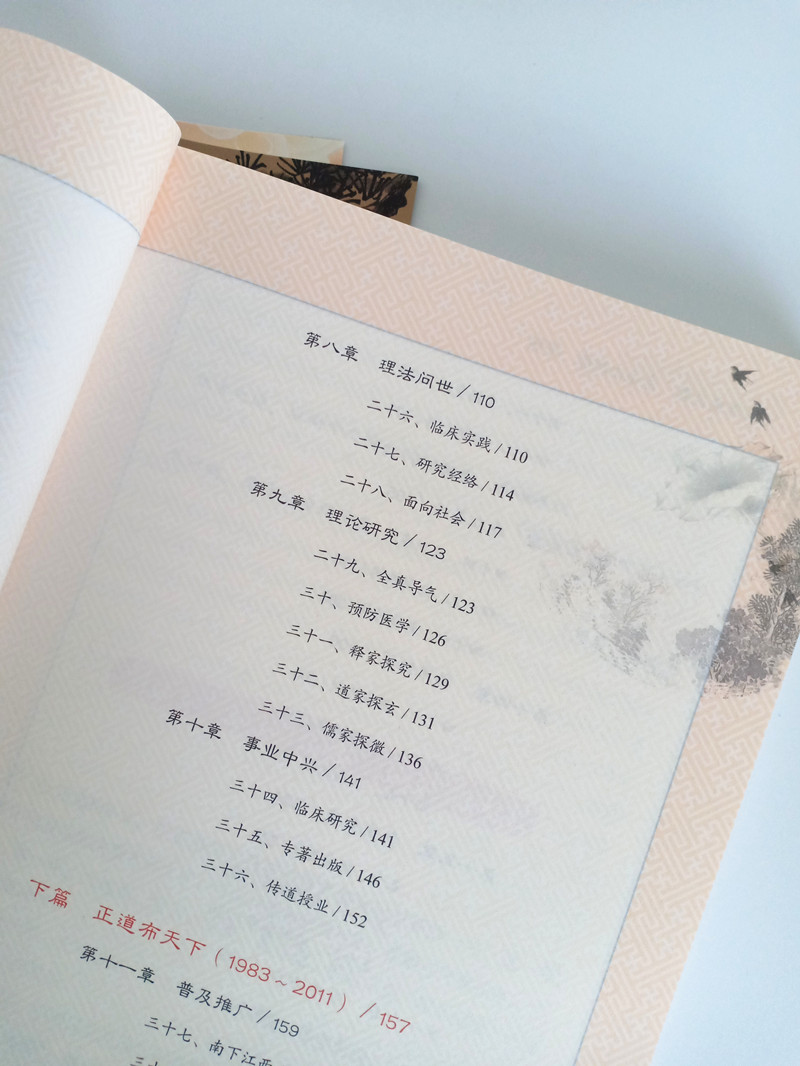 第八章 理法问世 / 110
二十六、临床实践 / 110
二十七、研究经络 / 114
二十八、面向社会 / 117
第九章 理论研究 / 123
二十九、全真导气 / 123
三十、预防医学 / 126
三十一、释家探究 / 129
三十二、道家探玄 / 131
三十三、儒家探微 / 136
第十章 事业中兴 / 141
三十四、临床研究 / 141
三十五、专著出版 / 146
三十六、传道授业 / 152
下篇 正道布天下（1983～2011） / 157
第十一章 普及推广 / 159
三十七、南下江西